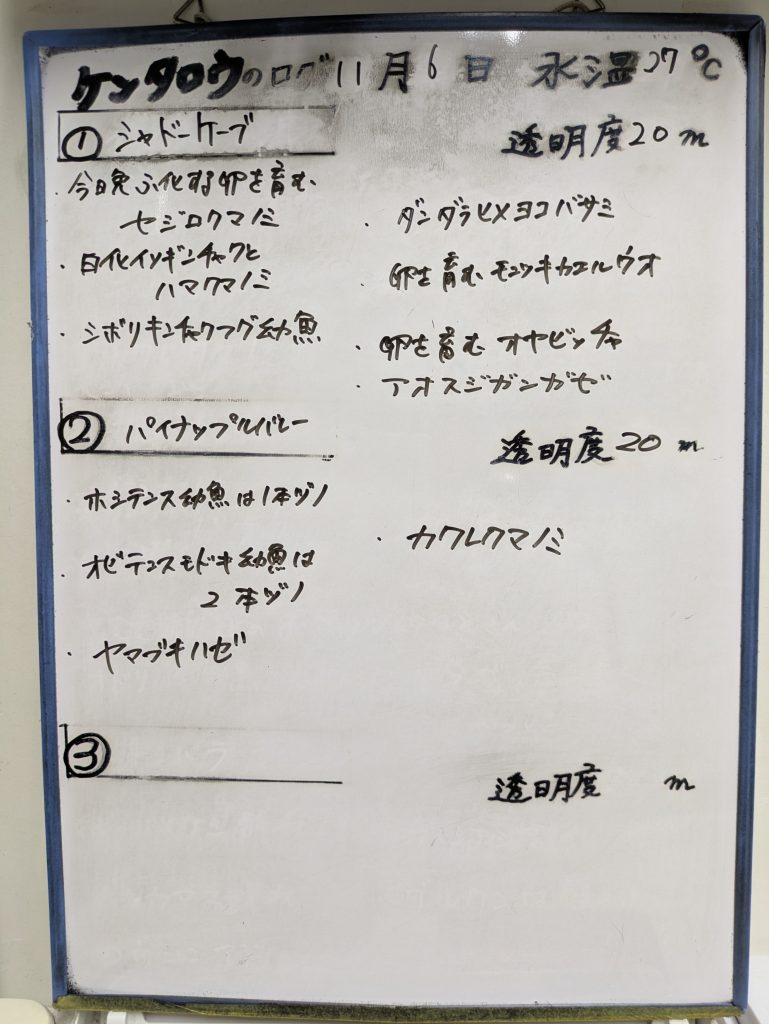 ケンタロウのログ 11月6日 水温27℃
① シャドーケーブ
透明度20m
・今日晩ふ化する卵を育む
セジロクマノミ
・白化イソギンチャクと
ハマクマノミ
・シボリキンチャクフグ幼魚
・ダンダラヒメヨコバサミ
・卵を育むモンツキカエルウオ
・卵を育むオヤビッチャ
・アオスジガンガゼ
② パイナップルバレー
透明度20m
・ホシテンス幼魚は1本ヅノ
・オビテンスモドキ幼魚は
2本ヅノ
・ヤマブキハゼ
・カクレクマノミ
③
透明度 m